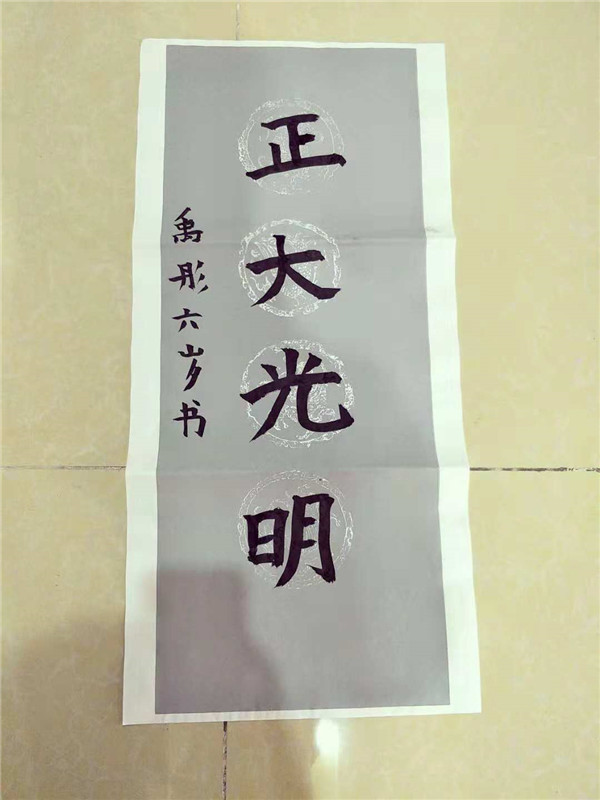 正大光明
禹彤六岁书